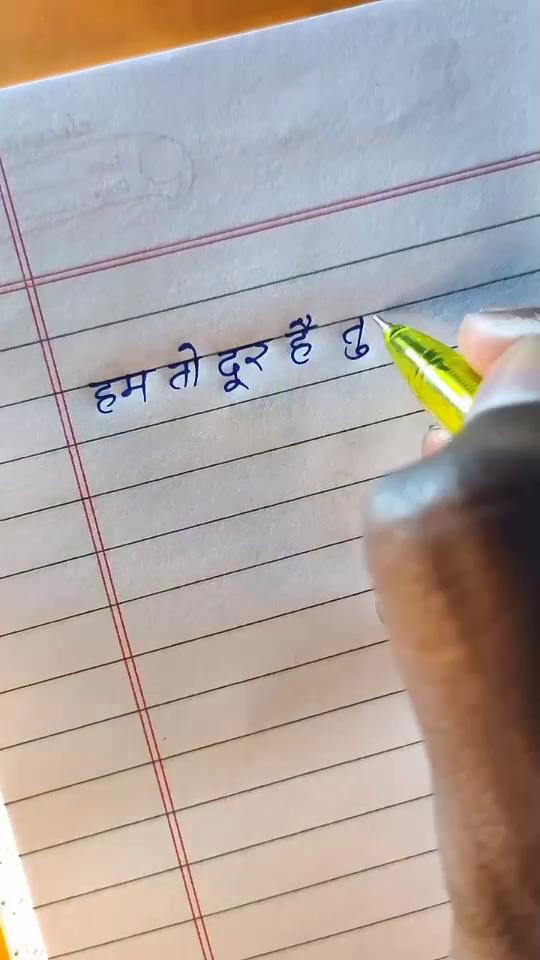 हम तो दूर है तु